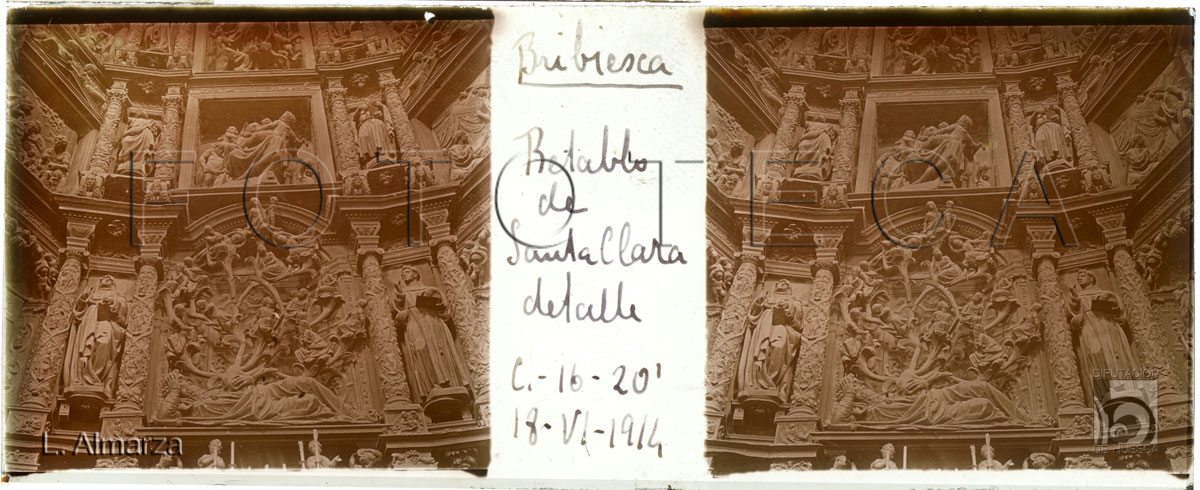 Bribiesca
Retablo
de
Santa Clara
detalle
C.-16-20'
18-VI-1914
FOTOTECA
L. Almarza
DIPUTACION
DE HUESCA